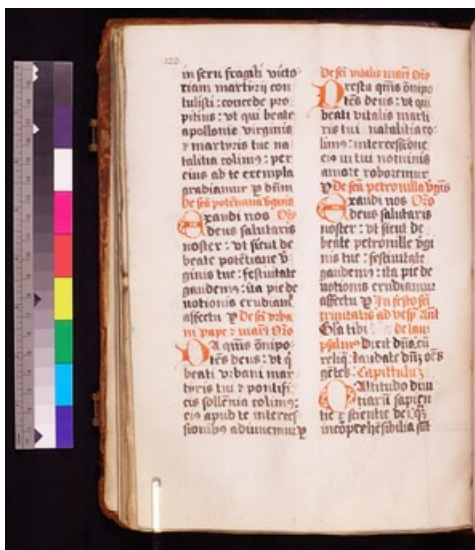 120
in sexu fragili victo
riam martyrij con
tulisti : concede pro
pitius : vt qui beate
apollonie virginis
⁊ martyris tue na
talitia colimꝰ : per
eius ad te exempla
gradiamur ꝑ dn̄m
De scā potētiana v̄ginis
Exaudi nos Or̄o
deus salutaris
noster : vt sicut de
beate potētiane v̄
ginis tue : festiuitate
gaudemꝰ : ita pie de
uotionis erudiam̄
affectu ꝑ De scō vrba
ni pape ⁊ mart̄ Or̄o
Da qm̄s om̄ipo
tēs deus : vt q̇
beati vrbani mar
tyris tui ⁊ pontifi
cis sollēnia colimꝰ :
eiꝰ apud te interces
sionibꝰ adiuuemur ꝑ
De scī vitalis mart̄ Or̄o
Presta qm̄s om̄ipo
tēs deus : vt qui
beati vitalis marti
ris tui natalitia co
limꝰ : intercessione
eiꝰ in tui nominis
amore roboremur
ꝑ De scā petronilla v̄gīs
Exaudi nos Or̄o
deus salutaris
noster : vt sicut de
beate petronille v̄gi
nis tue : festiuitate
gaudemꝰ : ita pie de
uotionis erudiamur
affectu ꝑ In festo scē
trinitatis ad vesp̄ ant̄
Gl̄a tibi de lau
psalmꝰ dixit dn̄s. cū
reliq̇. laudate dn̄z oēs
gētes. Capitulūz
O Altitudo diui
tiarū sapien
tie ⁊ scientie dei. q̄z
incōprehēsibilia sūt